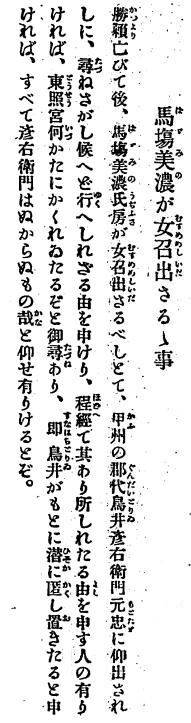 馬塲美濃が女召出さるゝ事
勝頼亡びて後、馬塲美濃氏房が女召出さるべしとて、甲州の郡代鳥井彦右衛門元忠に仰出され
しに、尋ねさがし候へど行へしれざる由を申けり、程經て其あり所しれたる由を申す人の有り
ければ、東照宮何かたにかくれゐたるぞと御尋あり、即鳥井がもとに潜に匿し置きたると申
ければ、すべて彦右衛門はぬからぬもの哉と仰せ有りけるとぞ。